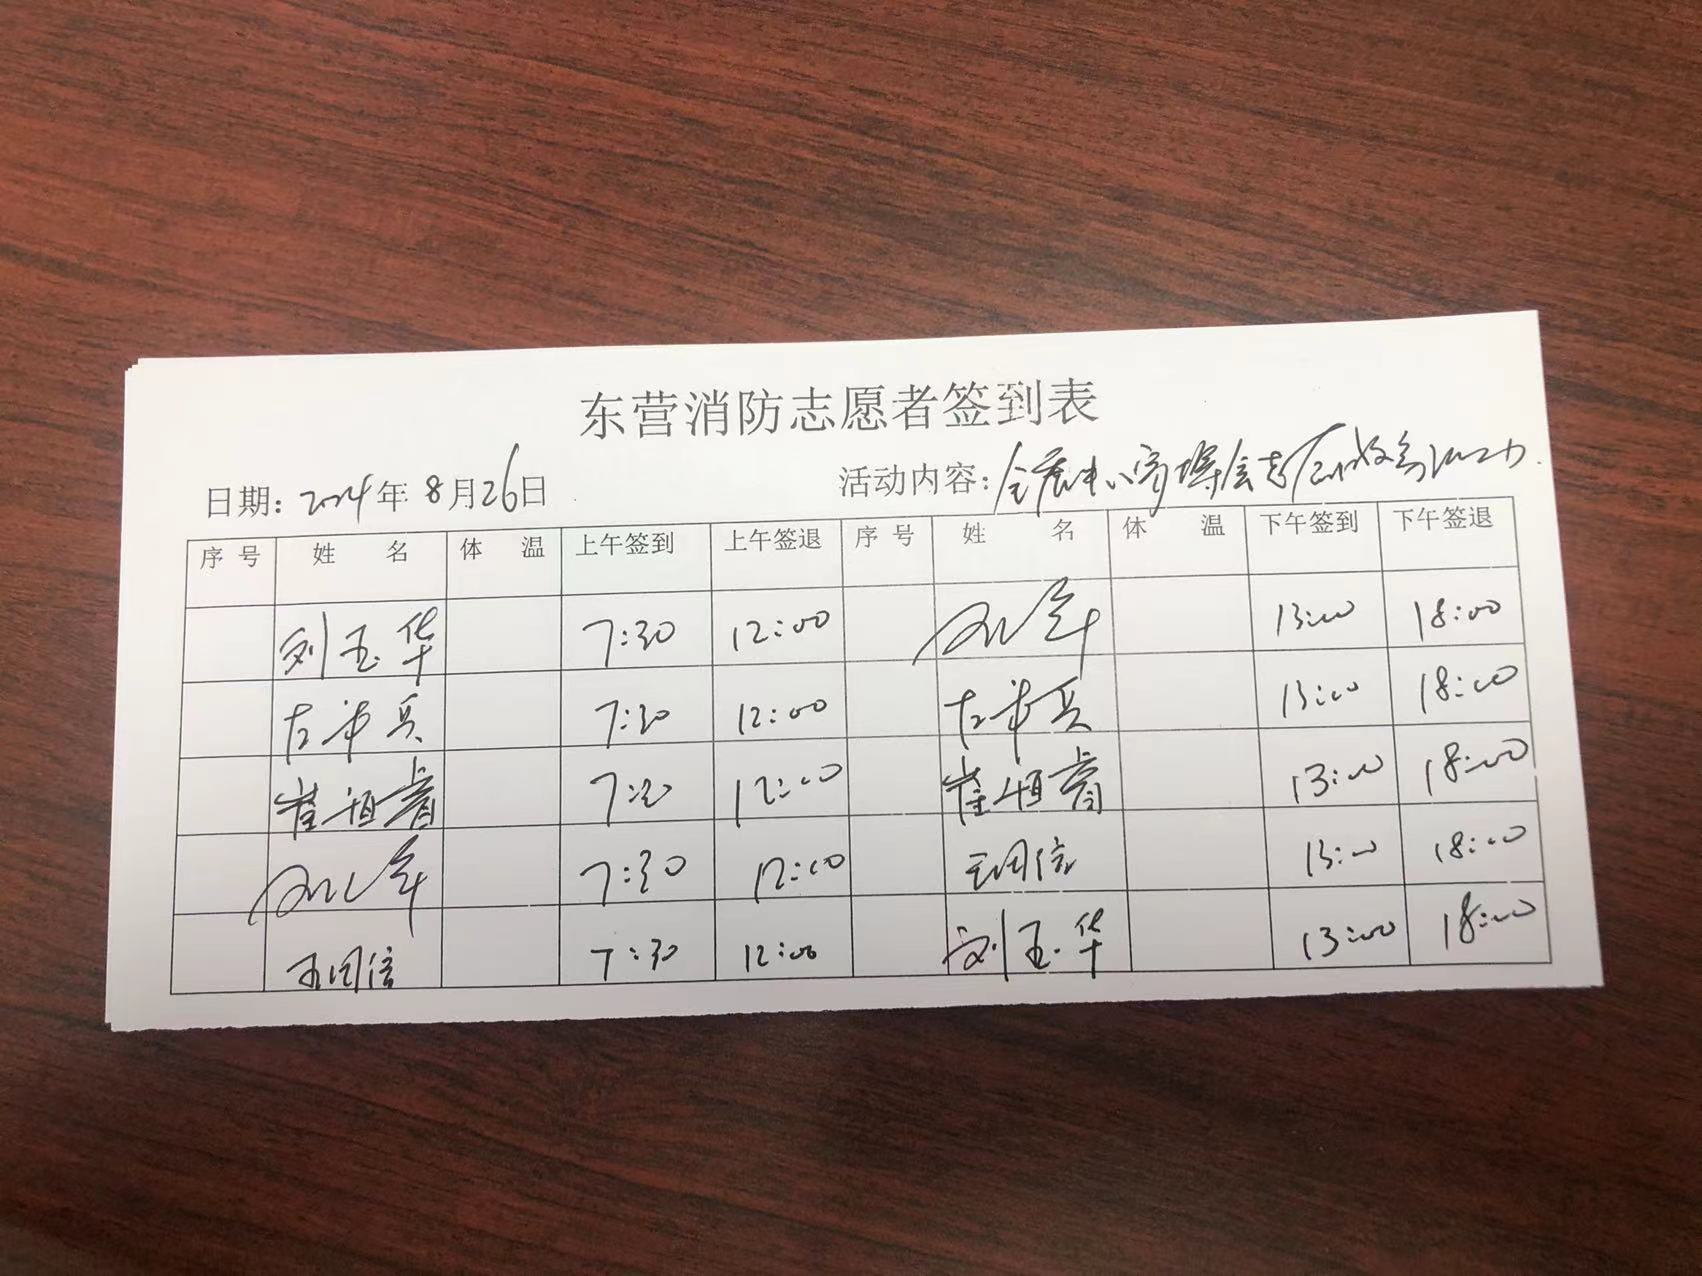 东营消防志愿者签到表
日期: 2024年 8月26日 活动内容:
序号 姓名 体温 上午签到 上午签退 序号 姓名 体温 下午签到 下午签退
刘玉华 7:30 12:00 13:00 18:00
左希兵 7:30 12:00 左希兵 13:00 18:00
崔恒睿 7:30 12:00 崔恒睿 13:00 18:00
7:30 12:00 王同信 13:00 18:00
王同信 7:30 12:00 刘玉华 13:00 18:00